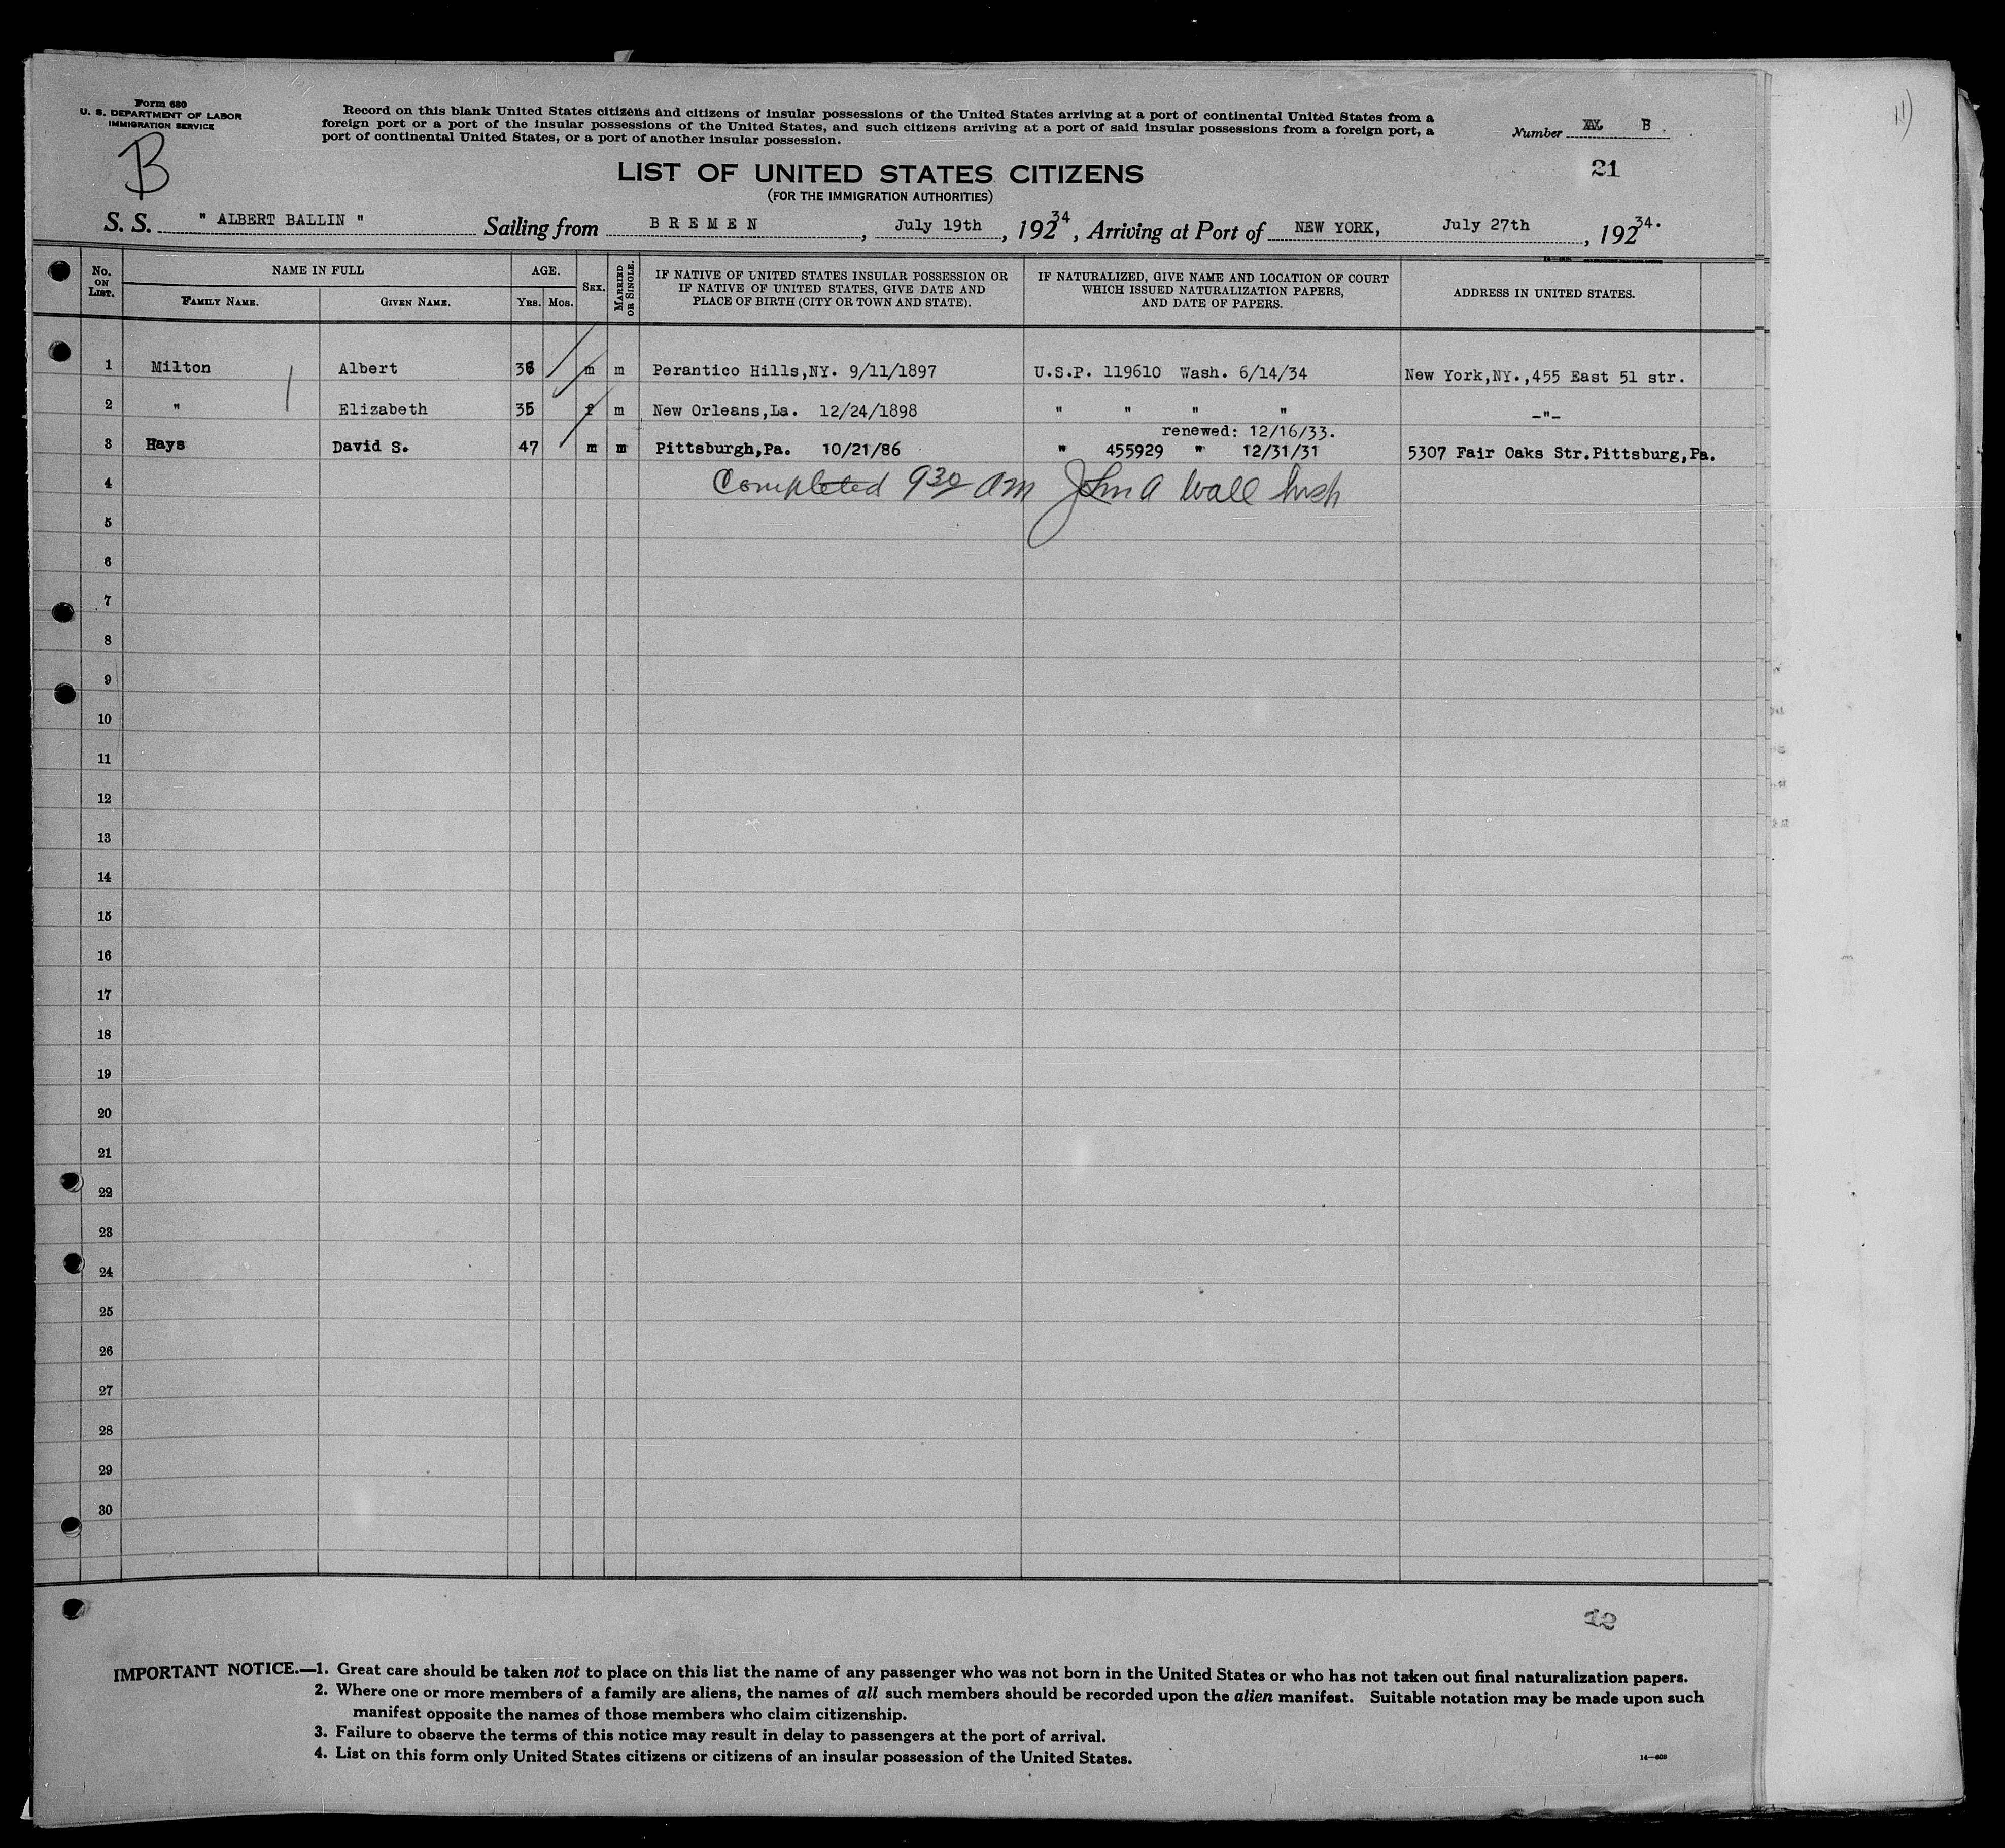 Form 630
U. S. DEPARTMENT OF LABOR
IMMIGRATION SERVICE
B
Record on this blank United States citizens and citizens of insular possessions of the United States arriving at a port of continental United States from a
foreign port or a port of the insular possessions of the United States, and such citizens arriving at a port of said insular possessions from a foreign port, a
port of continental United States, or a port of another insular possession.
Number B
21
11)
LIST OF UNITED STATES CITIZENS
(FOR THE IMMIGRATION AUTHORITIES)
S. S. " ALBERT BALLIN " Sailing from BREMEN, July 19th, 19234, Arriving at Port of NEW YORK, July 27th, 19234.
No. ON LIST. NAME IN FULL FAMILY NAME. GIVEN NAME. AGE. YRS. MOS. SEX. MARRIED OR SINGLE. IF NATIVE OF UNITED STATES INSULAR POSSESSION OR IF NATIVE OF UNITED STATES, GIVE DATE AND PLACE OF BIRTH (CITY OR TOWN AND STATE). IF NATURALIZED, GIVE NAME AND LOCATION OF COURT WHICH ISSUED NATURALIZATION PAPERS, AND DATE OF PAPERS. ADDRESS IN UNITED STATES.
1 Milton Albert 36 m m Perantico Hills,NY. 9/11/1897 U.S.P. 119610 Wash. 6/14/34 New York,NY.,455 East 51 str.
2 " Elizabeth 35 f m New Orleans,La. 12/24/1898 " " " " -"-
renewed: 12/16/33.
3 Hays David S. 47 m m Pittsburgh,Pa. 10/21/86 " 455929 " 12/31/31 5307 Fair Oaks Str.Pittsburg,Pa.
4 Completed 9 30 am John A Wall Insp
5
6
7
8
9
10
11
12
13
14
15
16
17
18
19
20
21
22
23
24
25
26
27
28
29
30
12
IMPORTANT NOTICE.—1. Great care should be taken not to place on this list the name of any passenger who was not born in the United States or who has not taken out final naturalization papers.
2. Where one or more members of a family are aliens, the names of all such members should be recorded upon the alien manifest. Suitable notation may be made upon such
manifest opposite the names of those members who claim citizenship.
3. Failure to observe the terms of this notice may result in delay to passengers at the port of arrival.
4. List on this form only United States citizens or citizens of an insular possession of the United States.